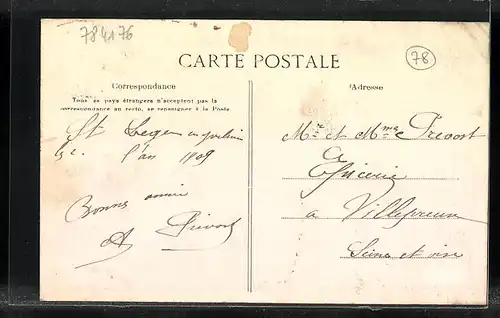 784176
78
CARTE POSTALE
Correspondance
Tous les pays étrangers n'acceptent pas la
correspondance au recto, se renseigner à la Poste.
St Leger en yveline
l'an 1909
Bonne année
A Prévost
Adresse
Mr et Mme Prevost
Epicerie
a Villepreux
Seine et oise